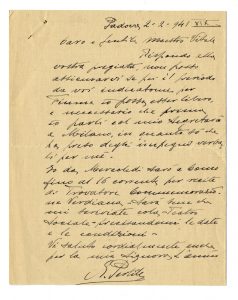 Padova, 2-2-941 XIX
Caro e gentile Maestro Vitale
Rispondo alla
vostra pregiata non posso
assicurarvi se per il periodo
da voi indicatomi, per
Firenze io posso esser libero,
è necessario che
io parli col mio Segretario
a Milano, in quanto so che
ha preso degli impegni verba
li per me.
Io da, Mercoledì sarò a Como
fino al 16 corrente, per recite
di Trovatore, Commemorazio-
ni Verdiane, sarà bene che
mi scriviate colà, Teatro
Sociale - precisandomi le date
e le condizioni -
Vi saluto cordialmente anche
per la mia Signora,
A. Pertile